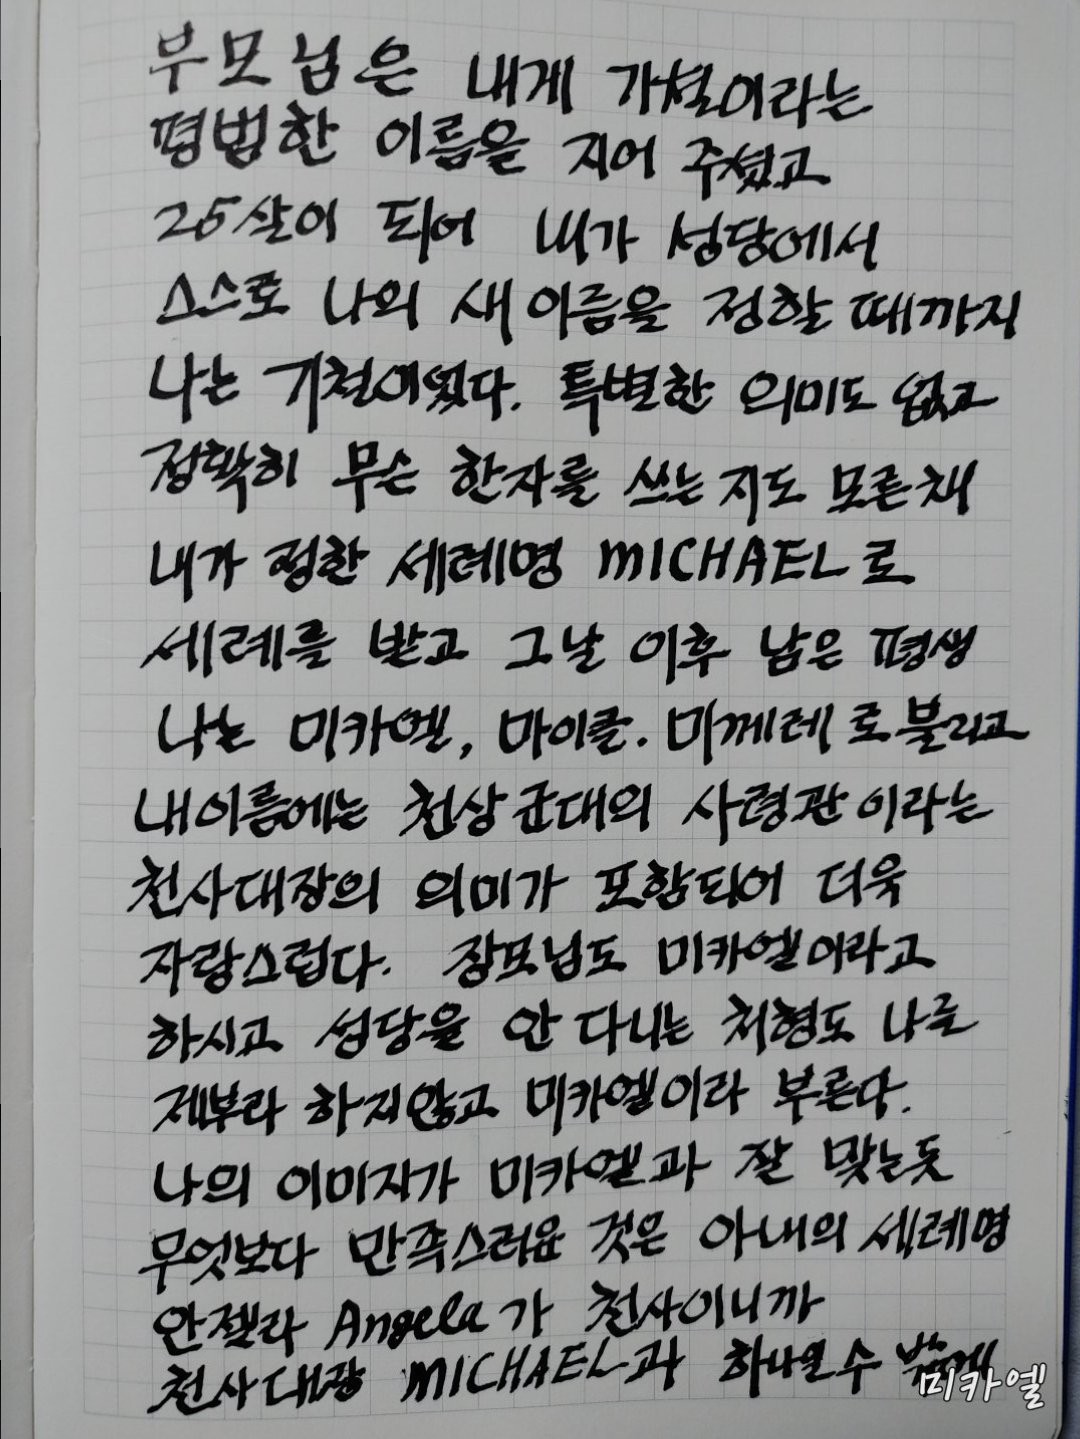 부모님은 내게 기철이라는
평범한 이름을 지어 주셨고
25살이 되어 내가 성당에서
스스로 나의 새 이름을 정할 때까지
나는 기철이였다. 특별한 의미도 없고
정확히 무슨 한자를 쓰는 지도 모른채
내가 정한 세례명 MICHAEL로
세례를 받고 그날 이후 남은 평생
나는 미카엘, 마이클. 미께레로 불리고
내이름에는 천상군대의 사령관이라는
천사대장의 의미가 포함되어 더욱
자랑스럽다. 장모님도 미카엘이라고
하시고 성당을 안 다니는 처형도 나를
제부라 하지않고 미카엘이라 부른다.
나의 이미지가 미카엘과 잘 맞는듯
무엇보다 만족스러운 것은 아내의 세례명
안젤라 Angela가 천사이니까
천사대장 MICHAEL과 하나일수 밖에
미카엘